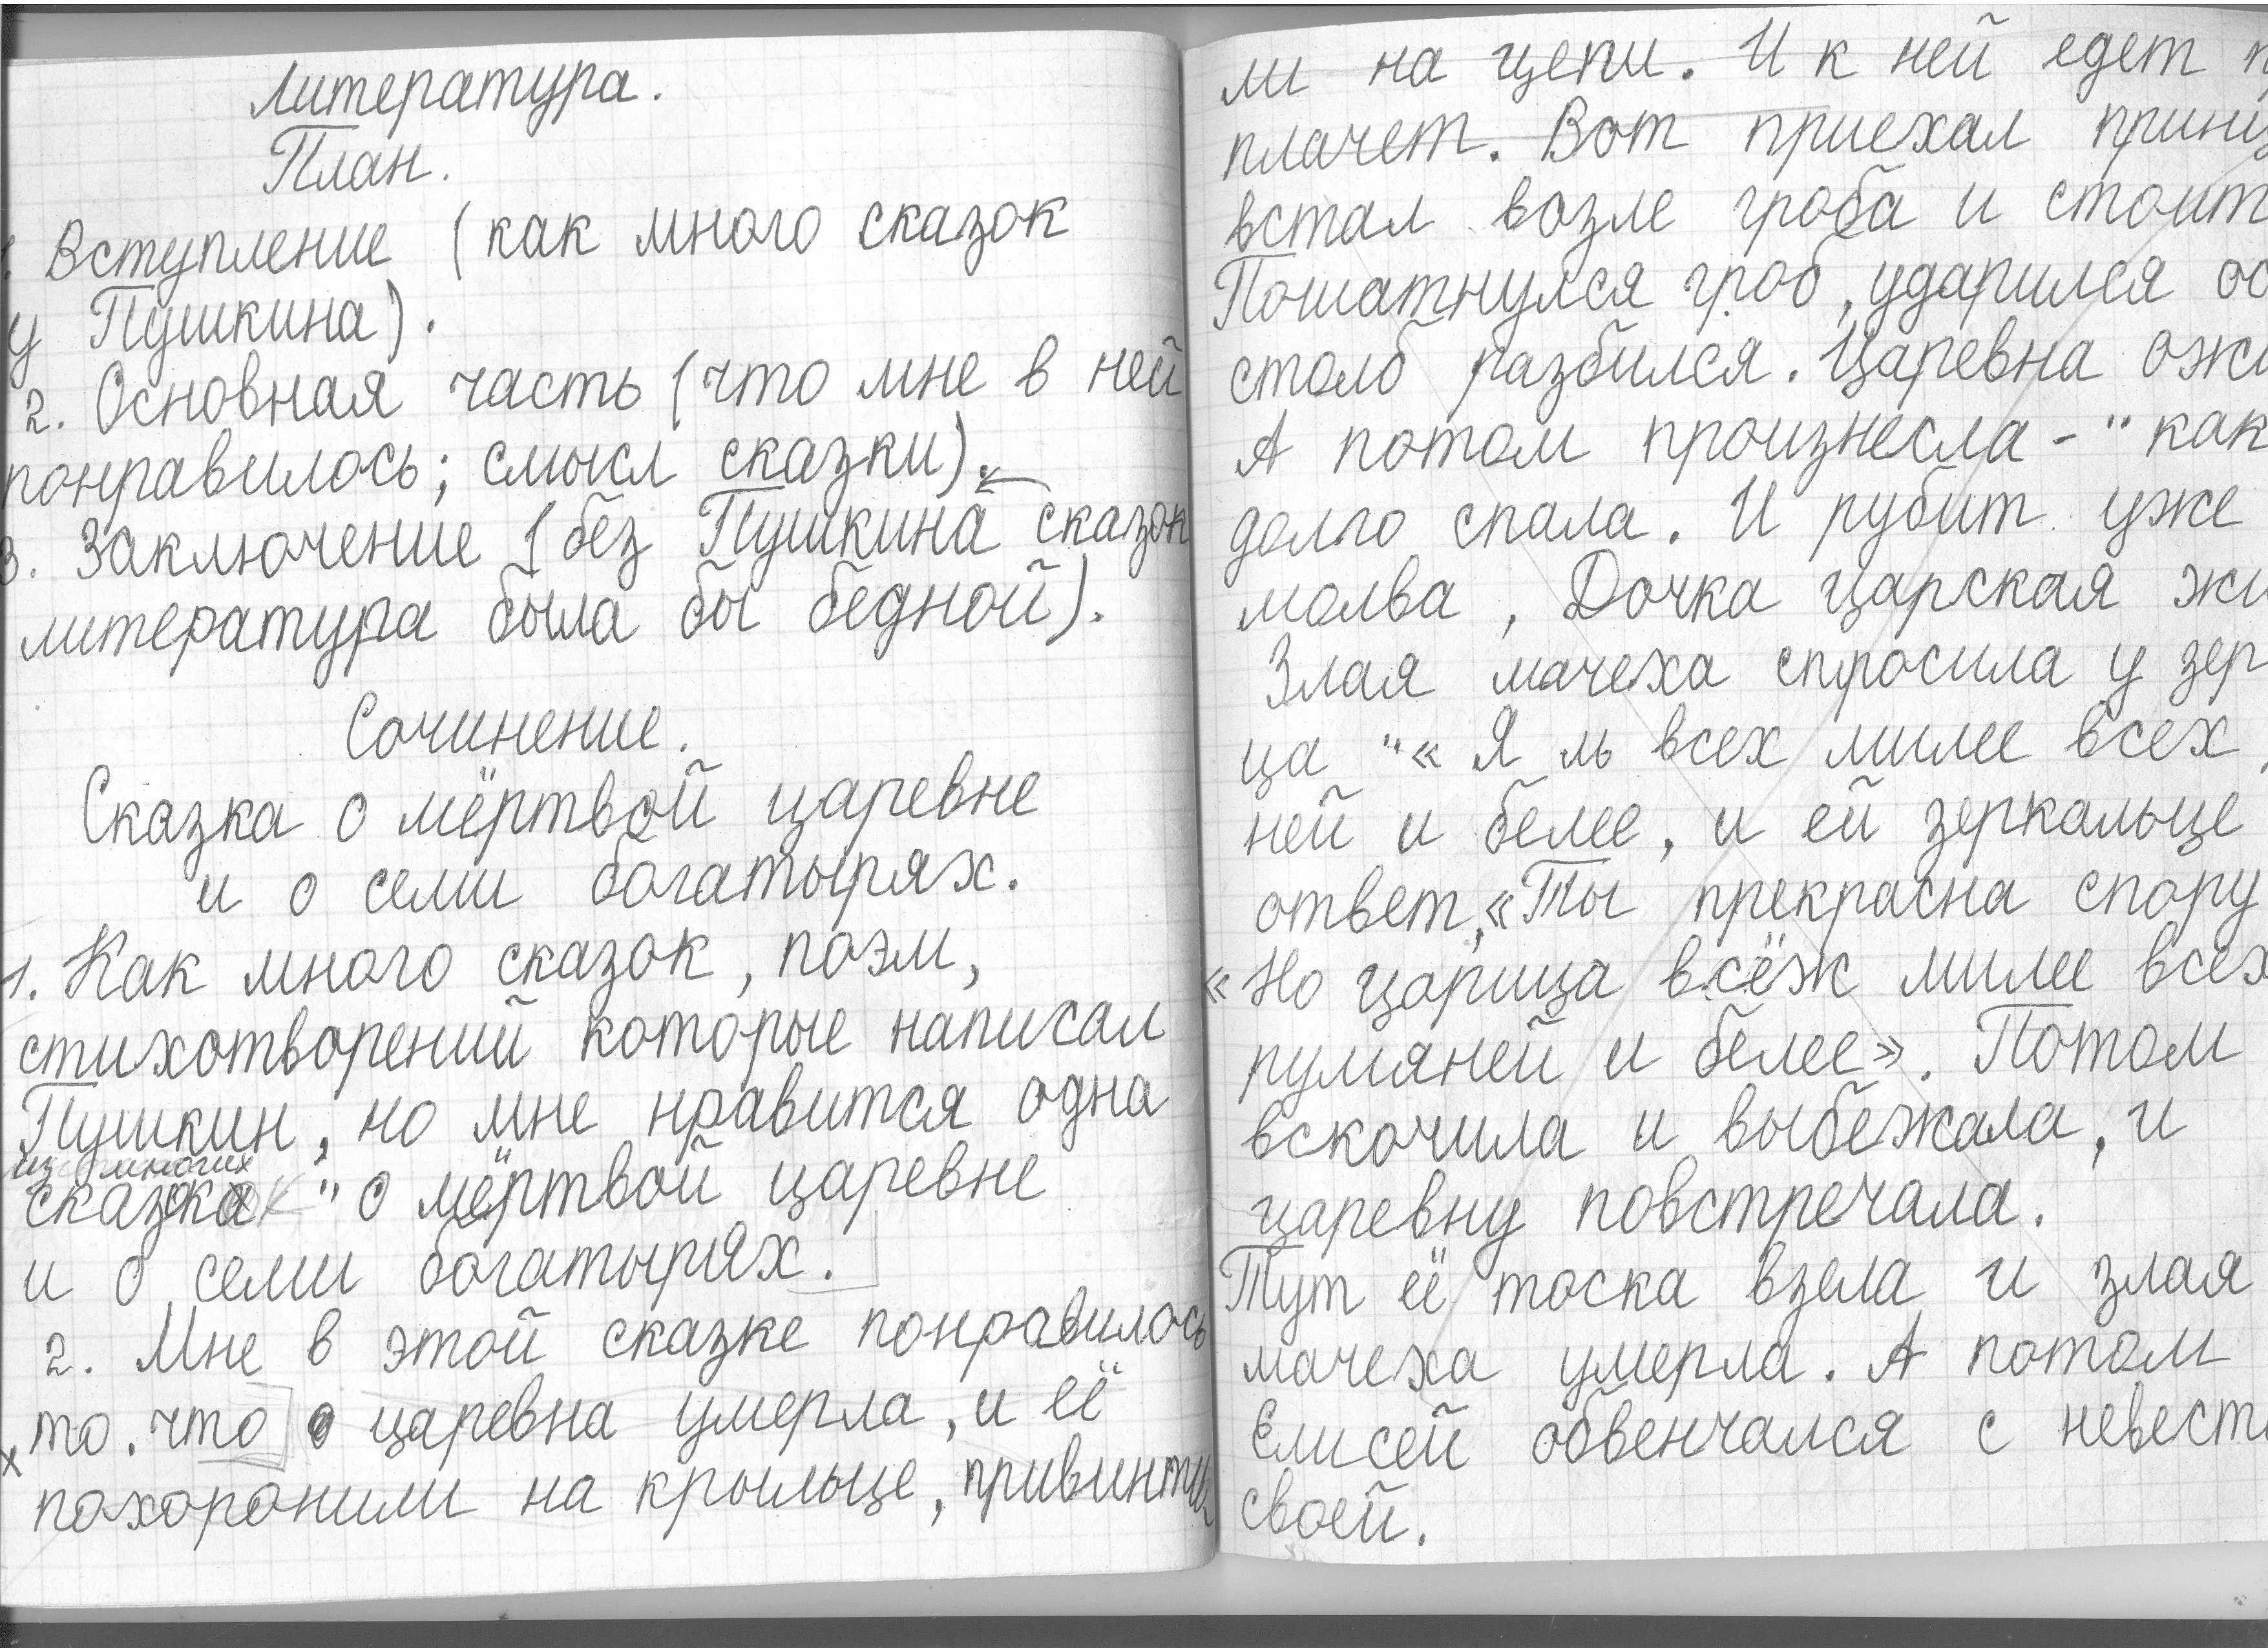 Литература.
План.
1. Вступление (как много сказок
у Пушкина).
2. Основная часть (что мне в ней
понравилось; смысл сказки).
3. Заключение (без Пушкина сказок
литература была бы бедной).
Сочинение.
Сказка о мёртвой царевне
и о семи богатырях.
1. Как много сказок, поэм,
стихотворений которые написал
Пушкин, но мне нравится одна
из многих
сказка "о мёртвой царевне
и о семи богатырях.
2. Мне в этой сказке понравилось
то, что царевна умерла, и её
похоронили на крыльце, привинти
ли на цепи. И к ней едет
плачет. Вот приехал принц
встал возле гроба и стоит
Пошатнулся гроб, ударился об
столб разбился. Царевна ожи
А потом произнесла - "как
долго спала. И рубит уже
молва, Дочка царская жи
Злая мачеха спросила у зер
ца "« Я ль всех милее всех,
ней и белее, и ей зеркальце
ответ, «Ты прекрасна спору
«Но царица всёж милее всех
румяней и белее». Потом
вскочила и выбежала, и
царевну повстречала.
Тут её тоска взела и злая
мачеха умерла. А потом
Елисей обвенчался с невест
своей.